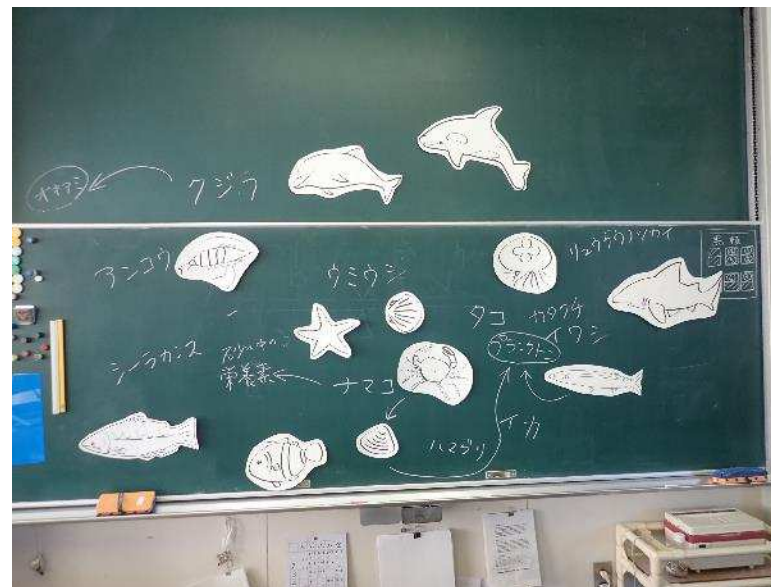 オキアミ
クジラ
アンコウ
ウミウシ
リュウグウノツカイ
タコ
カタクチ
イワシ
プランクトン
シーラカンス
砂の中の
栄養素
ナマコ
ハマグリ
イカ